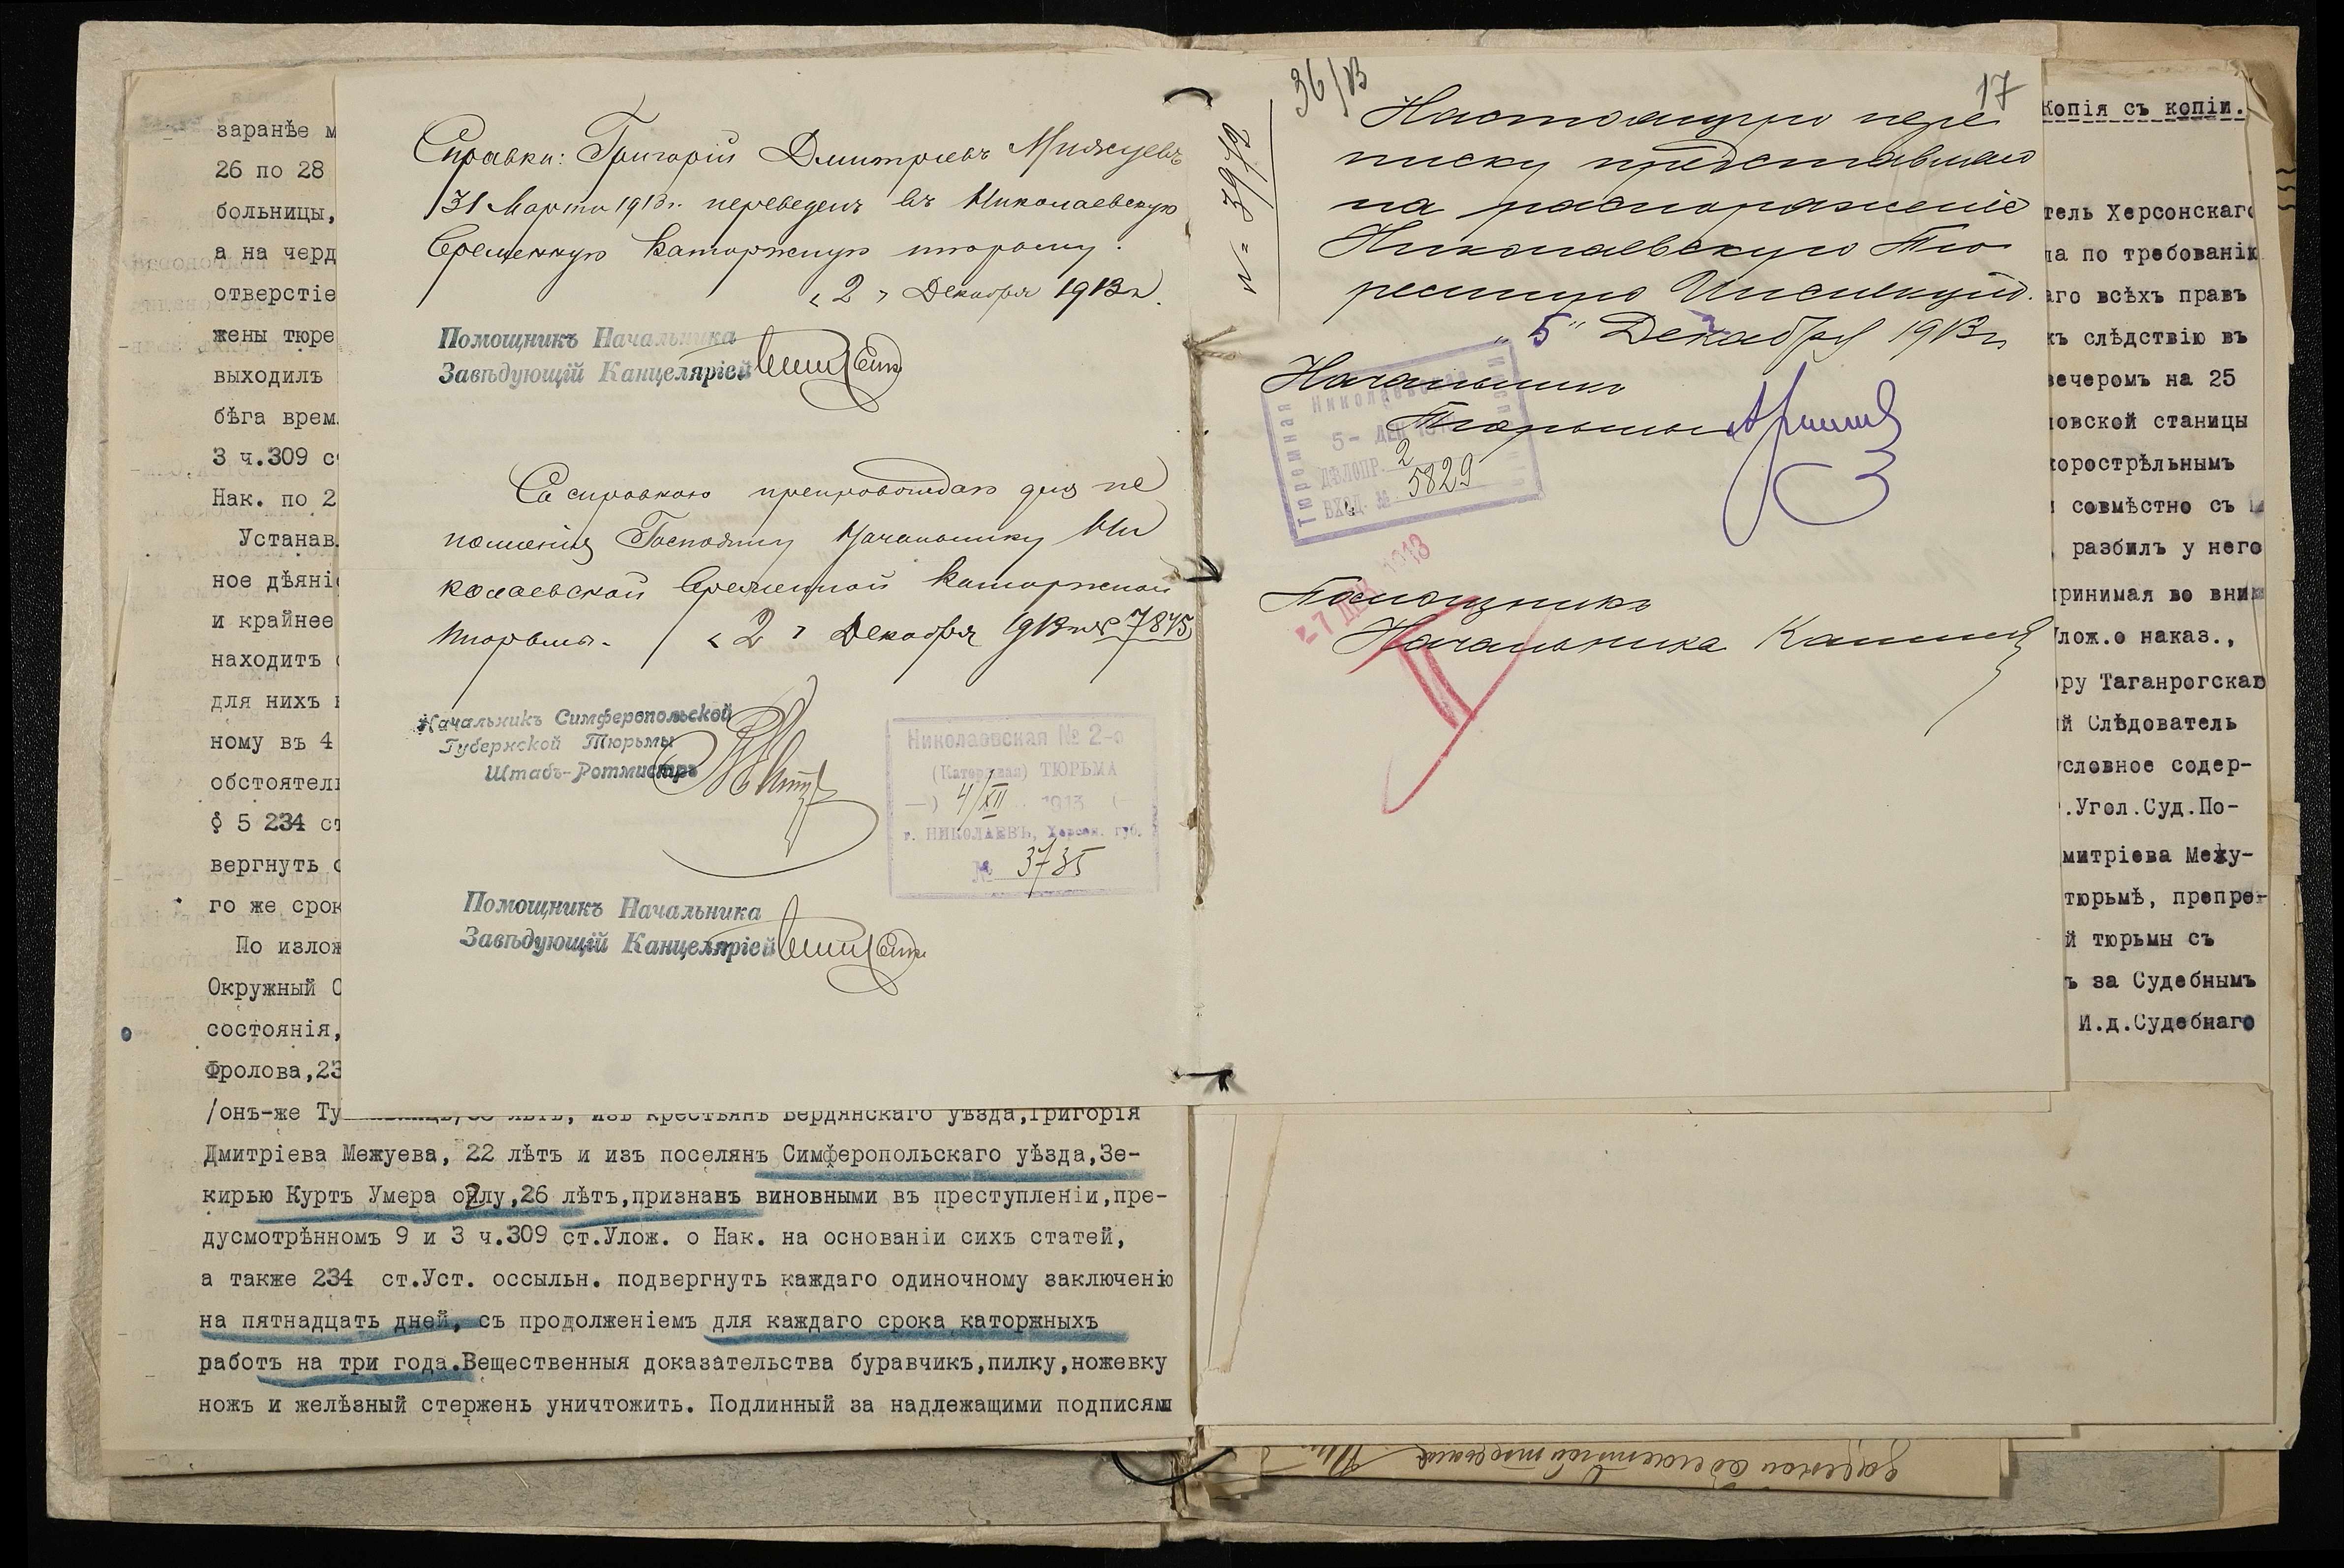 заранѣе м
26 по 28
больницы,
а на черд
отверстіе
жены тюре
выходилъ
бѣга врем
3 ч.309 с
Нак. по 2
Устанав
ное дѣяні
и крайнее
находитъ
для нихъ
ному въ 4
обстоятел
§ 5 234 ст
вергнуть с
го же срок
По излож
Окружный С
состоянія,
Фролова,23
/онъ-же Ту
лѣтъ, изъ крестьянъ Бердянскаго уѣзда,Григорія
Дмитріева Межуева, 22 лѣтъ и изъ поселянъ Симферопольскаго уѣзда,Зе-
кирью Куртъ Умера оглу,26 лѣтъ,признавъ виновными въ преступленіи,пре-
дусмотрѣнномъ 9 и 3 ч.309 ст.Улож. о Нак. на основаніи сихъ статей,
а также 234 ст.Уст. оссыльн. подвергнуть каждаго одиночному заключенію
на пятнадцать дней, съ продолженіемъ для каждаго срока каторжныхъ
работъ на три года.Вещественныя доказательства буравчикъ,пилку,ножевку
ножъ и желѣзный стержень уничтожить. Подлинный за надлежащими подписями
Справка: Григорій Дмитріевъ Мижуевъ
31 Марта 1913 г. переведенъ въ Николаевскую
временную каторжную тюрьму.
«2» Декабря 1913 г.
Помощникъ Начальника
Завѣдующій Канцеляріей
Со справкою препровождаю для ис
полненія Господину Начальнику Ни
колаевской временной каторжной
тюрьмы. «2» Декабря 1913 г. № 7845
Начальникъ Симферопольской
Губернской Тюрьмы
Штабъ-Ротмистръ
Николаевская № 2-о
(Каторжная) ТЮРЬМА
4/XII 1913
г. НИКОЛАЕВЪ, Херсон. губ.
№ 3735
Помощникъ Начальника
Завѣдующій Канцеляріей
36/13
17
№ 3972
Настоящую пере
писку представляю
на распоряженіе
Николаевскую Тю
ремную Инспекцію.
"5" Декабря 1913 г.
Начальникъ
Тюрьмы
Николаевская
Тюремная
5- ДЕК
ДѢЛОПР. 2
ВХОД. № 5829
-7 ДЕК 1913
Помощникъ
Начальника
Копія съ копіи.
тель Херсонскаго
ла по требованію
аго всѣхъ правъ
къ слѣдствію въ
вечеромъ на 25
ловской станицы
корострѣльнымъ
и совмѣстно съ
, разбилъ у него
принимая во вни
Улож.о наказ.,
ору Таганрогскаго
ый Слѣдователь
условное содер-
.Угол.Суд.По-
митріева Межу-
тюрьмѣ, препро-
й тюрьмы съ
ъ за Судебнымъ
И.д.Судебнаго